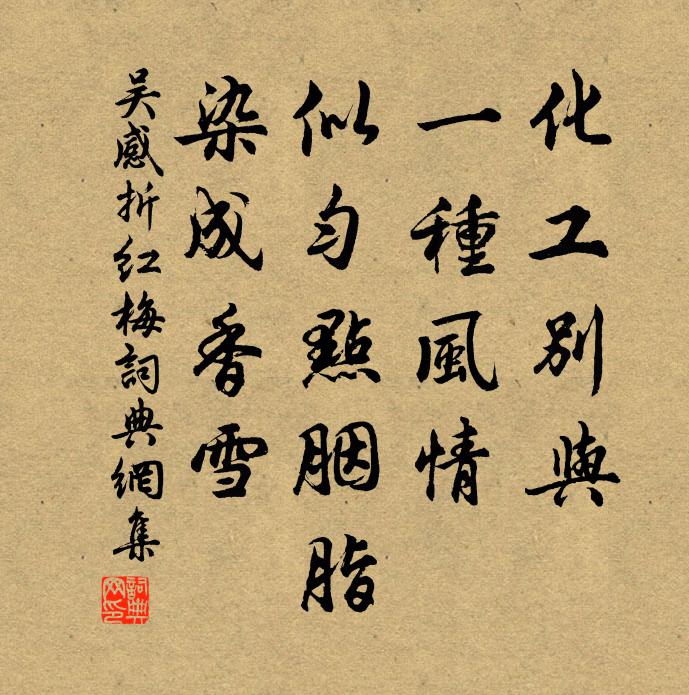 化工別與
一種風情
似勻點胭脂
染成香雪
吳感折紅梅詞典網集
詞典网印